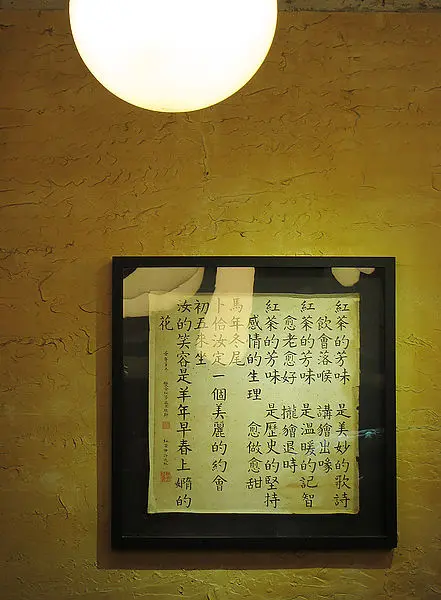 紅茶的芳味 是美妙的歌詩
飲會落喉 講繪出喙
紅茶的芳味 是溫暖的記智
愈老愈好 攏繪退時
紅茶的芳味 是歷史的堅持
感情的生理 愈做愈甜
馬年冬尾
卜佮汝定一個美麗的約會
初五來坐
汝的笑容是羊年早春上嫷的
花